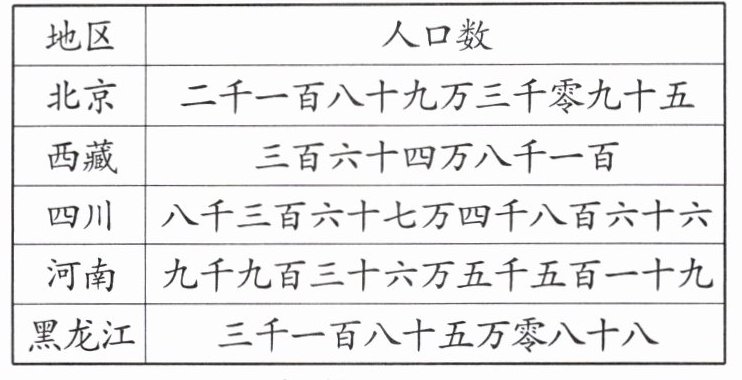 地区 人口数
北京 二千一百八十九万三千零九十五
西藏 三百六十四万八千一百
四川 八千三百六十七万四千八百六十六
河南 九千九百三十六万五千五百一十九
黑龙江 三千一百八十五万零八十八